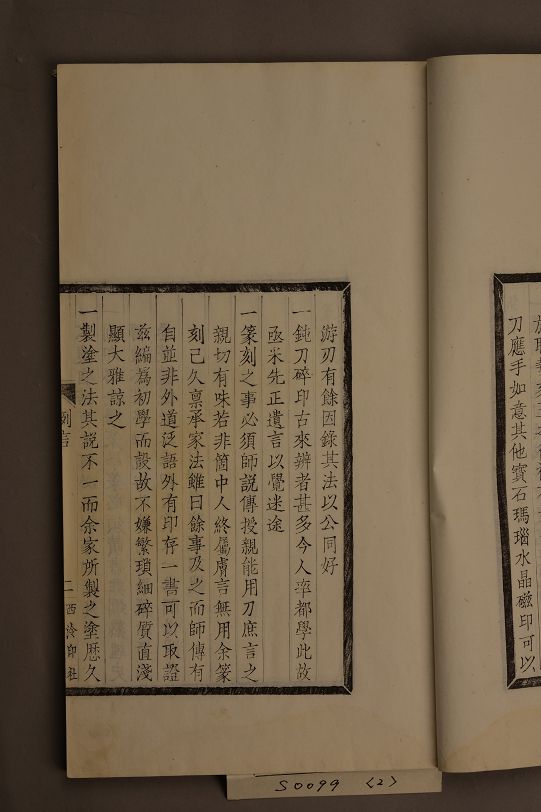 刀應手如意其他寶石瑪瑙水晶磁印可以
游刃有餘因錄其法以公同好
一鈍刀碎印古來辨者甚多今人率都學此故
亟采先正遺言以覺迷途
一篆刻之事必須師說傳授親能用刀庶言之
親切有味若非箇中人終屬膚言無用余篆
刻己久稟承家法雖曰餘事及之而師傳有
自並非外道泛語外有印存一書可以取證
茲編為初學而設故不嫌繁瑣細碎質直淺
顯大雅諒之
一製塗之法其說不一而余家所製之塗歷久
例言
二
西泠印社
S0099 <2>